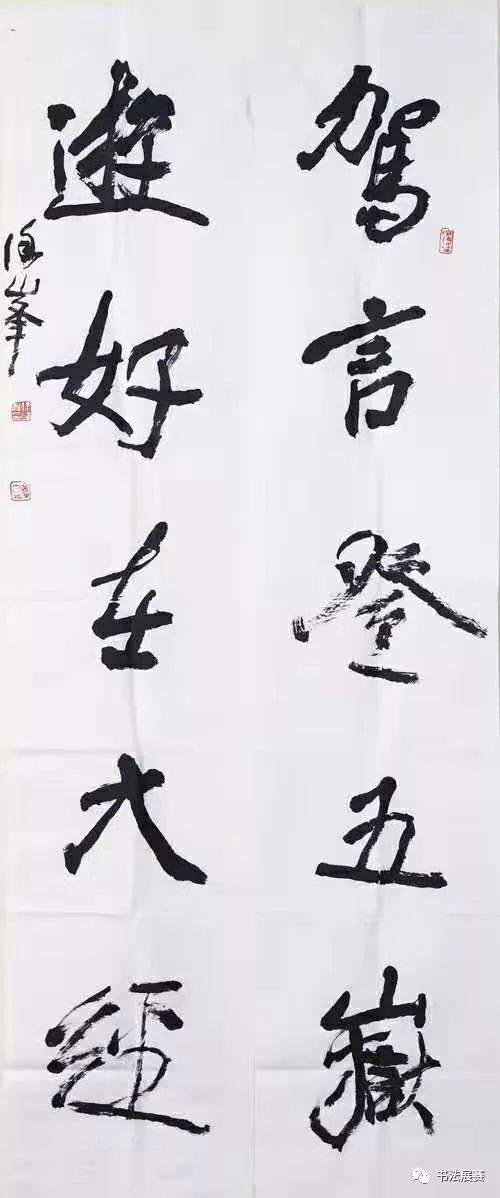 駕言登五嶽
遊好在六經
山峯
书法展赛